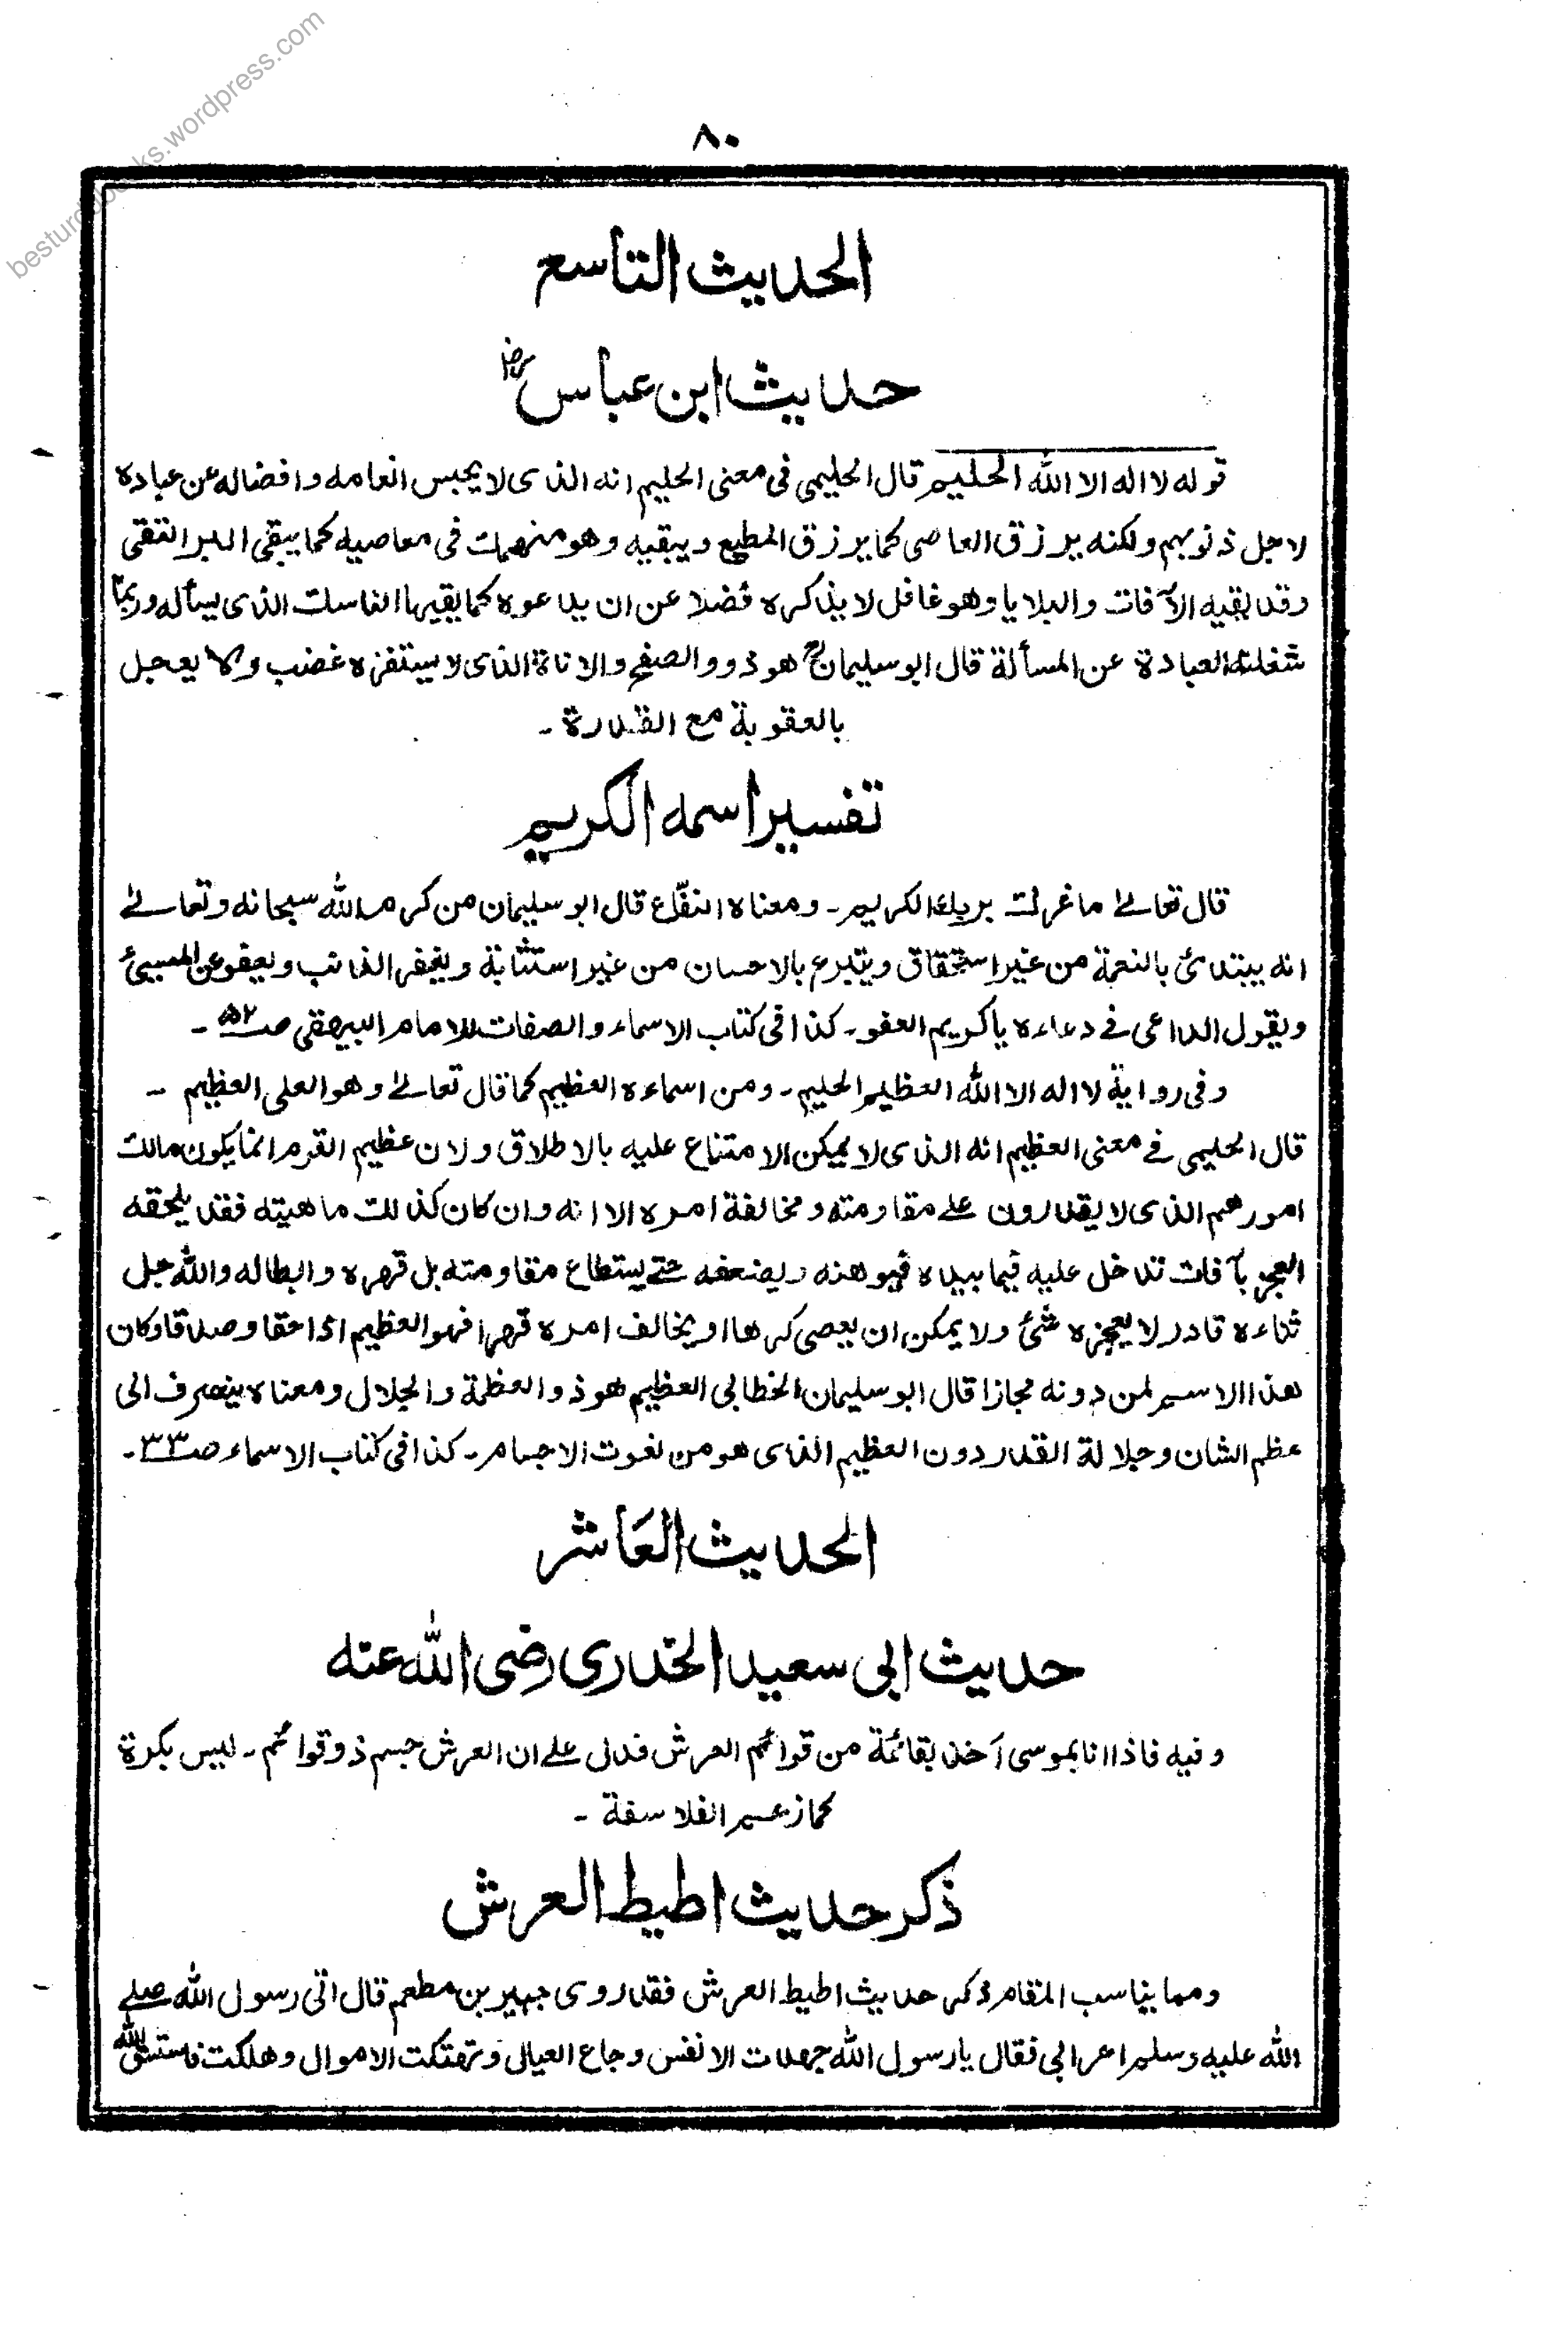 besturdubooks.wordpress.com
٨٠
الحديث التاسع
حديث ابن عباس رض
قوله لا اله الا الله الحليم قال الحليمي في معنى الحليم انه الذي لا يحبس انعامه وافضاله عن عباده
لاجل ذنوبهم ولكنه يرزق العاصي كما يرزق المطيع ويبقيه وهو منهمك في معاصيه كما يبقي البر التقي
وقد يقيه الآفات والبلايا وهو غافل لا يذكره فضلا عن ان يدعوه كما يقيها الناسك الذي يسأله وربما
شغلته العبادة عن المسألة قال ابو سليمان هو ذو الصفح والاناة الذي لا يستفزه غضب ولا يعجل
بالعقوبة مع القدرة ـ
تفسير اسمه الكريم
قال تعالى ما غرك بربك الكريم ـ ومعناه النفّاع قال ابو سليمان من كرم الله سبحانه وتعالى
انه يبتدئ بالنعمة من غير استحقاق ويتبرع بالاحسان من غير استثابة ويغفر الذنب ويعفو عن المسيئ
ويقول الداعي في دعاءه يا كريم العفو ـ كذا في كتاب الاسماء والصفات للامام البيهقي صـ ٥٢ ـ
وفي رواية لا اله الا الله العظيم الحليم ـ ومن اسماءه العظيم كما قال تعالى وهو العلي العظيم ـ
قال الحليمي في معنى العظيم انه الذي لا يمكن الامتناع عليه بالاطلاق ولان عظيم القوم انما يكون مالك
امورهم الذي لا يقدرون على مقاومته ومخالفة امره الا انه وان كان كذلك ماهيته فقد يلحقه
العجز بآفات تدخل عليه فيما بيده فيوهنه ويضعفه حتى يستطاع مقاومته بل قهره وابطاله والله جل
ثناءه قادر لا يعجزه شئ ولا يمكن ان يعصى كرها او يخالف امره قهرا فهو العظيم اذا حقا وصدقا وكان
هذا الاسم لمن دونه مجازا قال ابو سليمان الخطابي العظيم هو ذو العظمة والجلال ومعناه ينصرف الى
عظم الشان وجلالة القدر دون العظيم الذي هو من نعوت الاجسام ـ كذا في كتاب الاسماء صـ ٣٣ ـ
الحديث العَاشر
حديث ابي سعيد الخدري رضي الله عنه
وفيه فاذا انا بموسى آخذ بقائمة من قوائم العرش فدل على ان العرش جسم ذو قوائم ـ ليس بكرة
كما زعم الفلاسفة ـ
ذكر حديث اطيط العرش
ومما يناسب المقام ذكر حديث اطيط العرش فقد روى جبير بن مطعم قال اتى رسول الله صلى
الله عليه وسلم اعرابي فقال يا رسول الله جهدت الانفس وجاع العيال وتهتكت الاموال وهلكت فاستسق الله